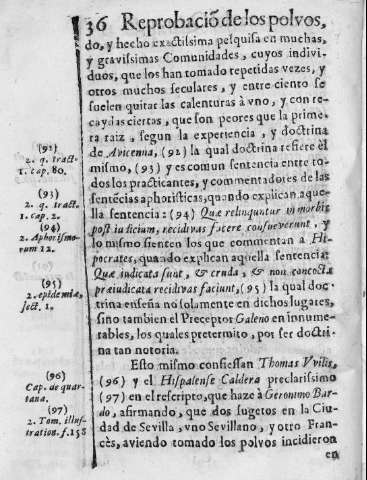 36 Reprobaciõ de los polvos,
do, y hecho exactissima pesquisa en muchas,
y gravissimas Comunidades, cuyos indivi-
duos, que los han tomado repetidas vezes, y
otros muchos seculares, y entre ciento se
suelen quitar las calenturas à vno, y con re-
caydas ciertas, que son peores que la prime-
ra raiz, segun la experiencia, y doctrina
de Avicenna, (92) la qual doctrina refiere el
mismo, (93) y es comun sentencia entre to-
dos los practicantes, y commentadores de las
sentẽcias aphoristicas, quando explican aque-
lla sentencia: (94) Quæ relinquntur in morbis
post iudicium, recidivas facere consueverunt, y
lo mismo sienten los que commentan à Hi-
pocrates, quando explican aquella sentencia:
Quæ indicata sunt, & cruda, & non concocta
præiudicata recidivas faciunt, (95) la qual doc-
trina enseña no solamente en dichos lugares,
sino tambien el Preceptor Galeno en innume-
rables, los quales pretermito, por ser doctri-
na tan notoria.
Esto mismo confiessan Thomas Vvilis,
(96) y el Hispalense Caldera preclarissimo
(97) en el rescripto, que haze à Geronimo Bar-
do, afirmando, que dos sugetos en la Ciu-
dad de Sevilla, vno Sevillano, y otro Fran-
cès, aviendo tomado los polvos incidieron
en
(92)
2. q. tract.
1. cap. 80.
(93)
2. q. tract.
1. cap. 2.
(94)
2. Aphorismo-
rum 12.
(95)
2. epidemia,
sect. 1.
(96)
Cap. de quar-
tana.
(97)
2. Tom. illus-
tration. f. 158